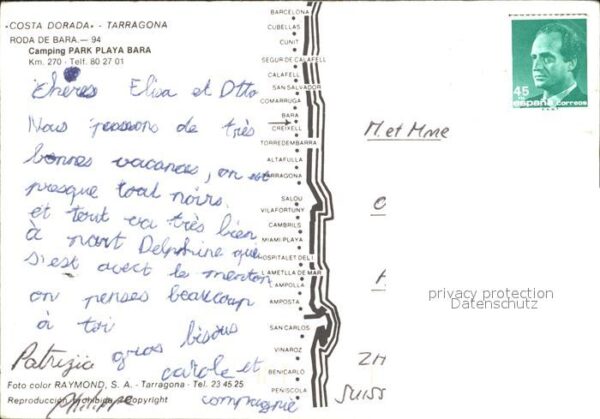 «COSTA DORADA» - TARRAGONA
RODA DE BARA. — 94
Camping PARK PLAYA BARA
Km. 270 - Telf. 80 27 01
Chères Elisa et Otto
Nous passons de très
bonnes vacances, on est
presque tout noirs.
et tout va très bien
à part Delphine qui
s'est avert le menton
on penses beaucoup
à toi
gros bisous
carole et
compagnie
Patrizia
Philippe
Foto color RAYMOND, S. A. - Tarragona - Tel. 23 45 25
Reproducción prohibida - Copyright
BARCELONA
CUBELLAS
CUNIT
SEGUR DE CALAFELL
CALAFELL
SAN SALVADOR
COMARRUGA
BARA
CREIXELL
TORREDEMBARRA
ALTAFULLA
TARRAGONA
SALOU
VILAFORTUNY
CAMBRILS
MIAMI PLAYA
HOSPITALET DEL I.
L'AMETLLA DE MAR
AMPOLLA
AMPOSTA
SAN CARLOS
VINAROZ
BENICARLO
PEÑISCOLA
45
españa correos
M. et Mme
privacy protection
Datenschutz
SUISS